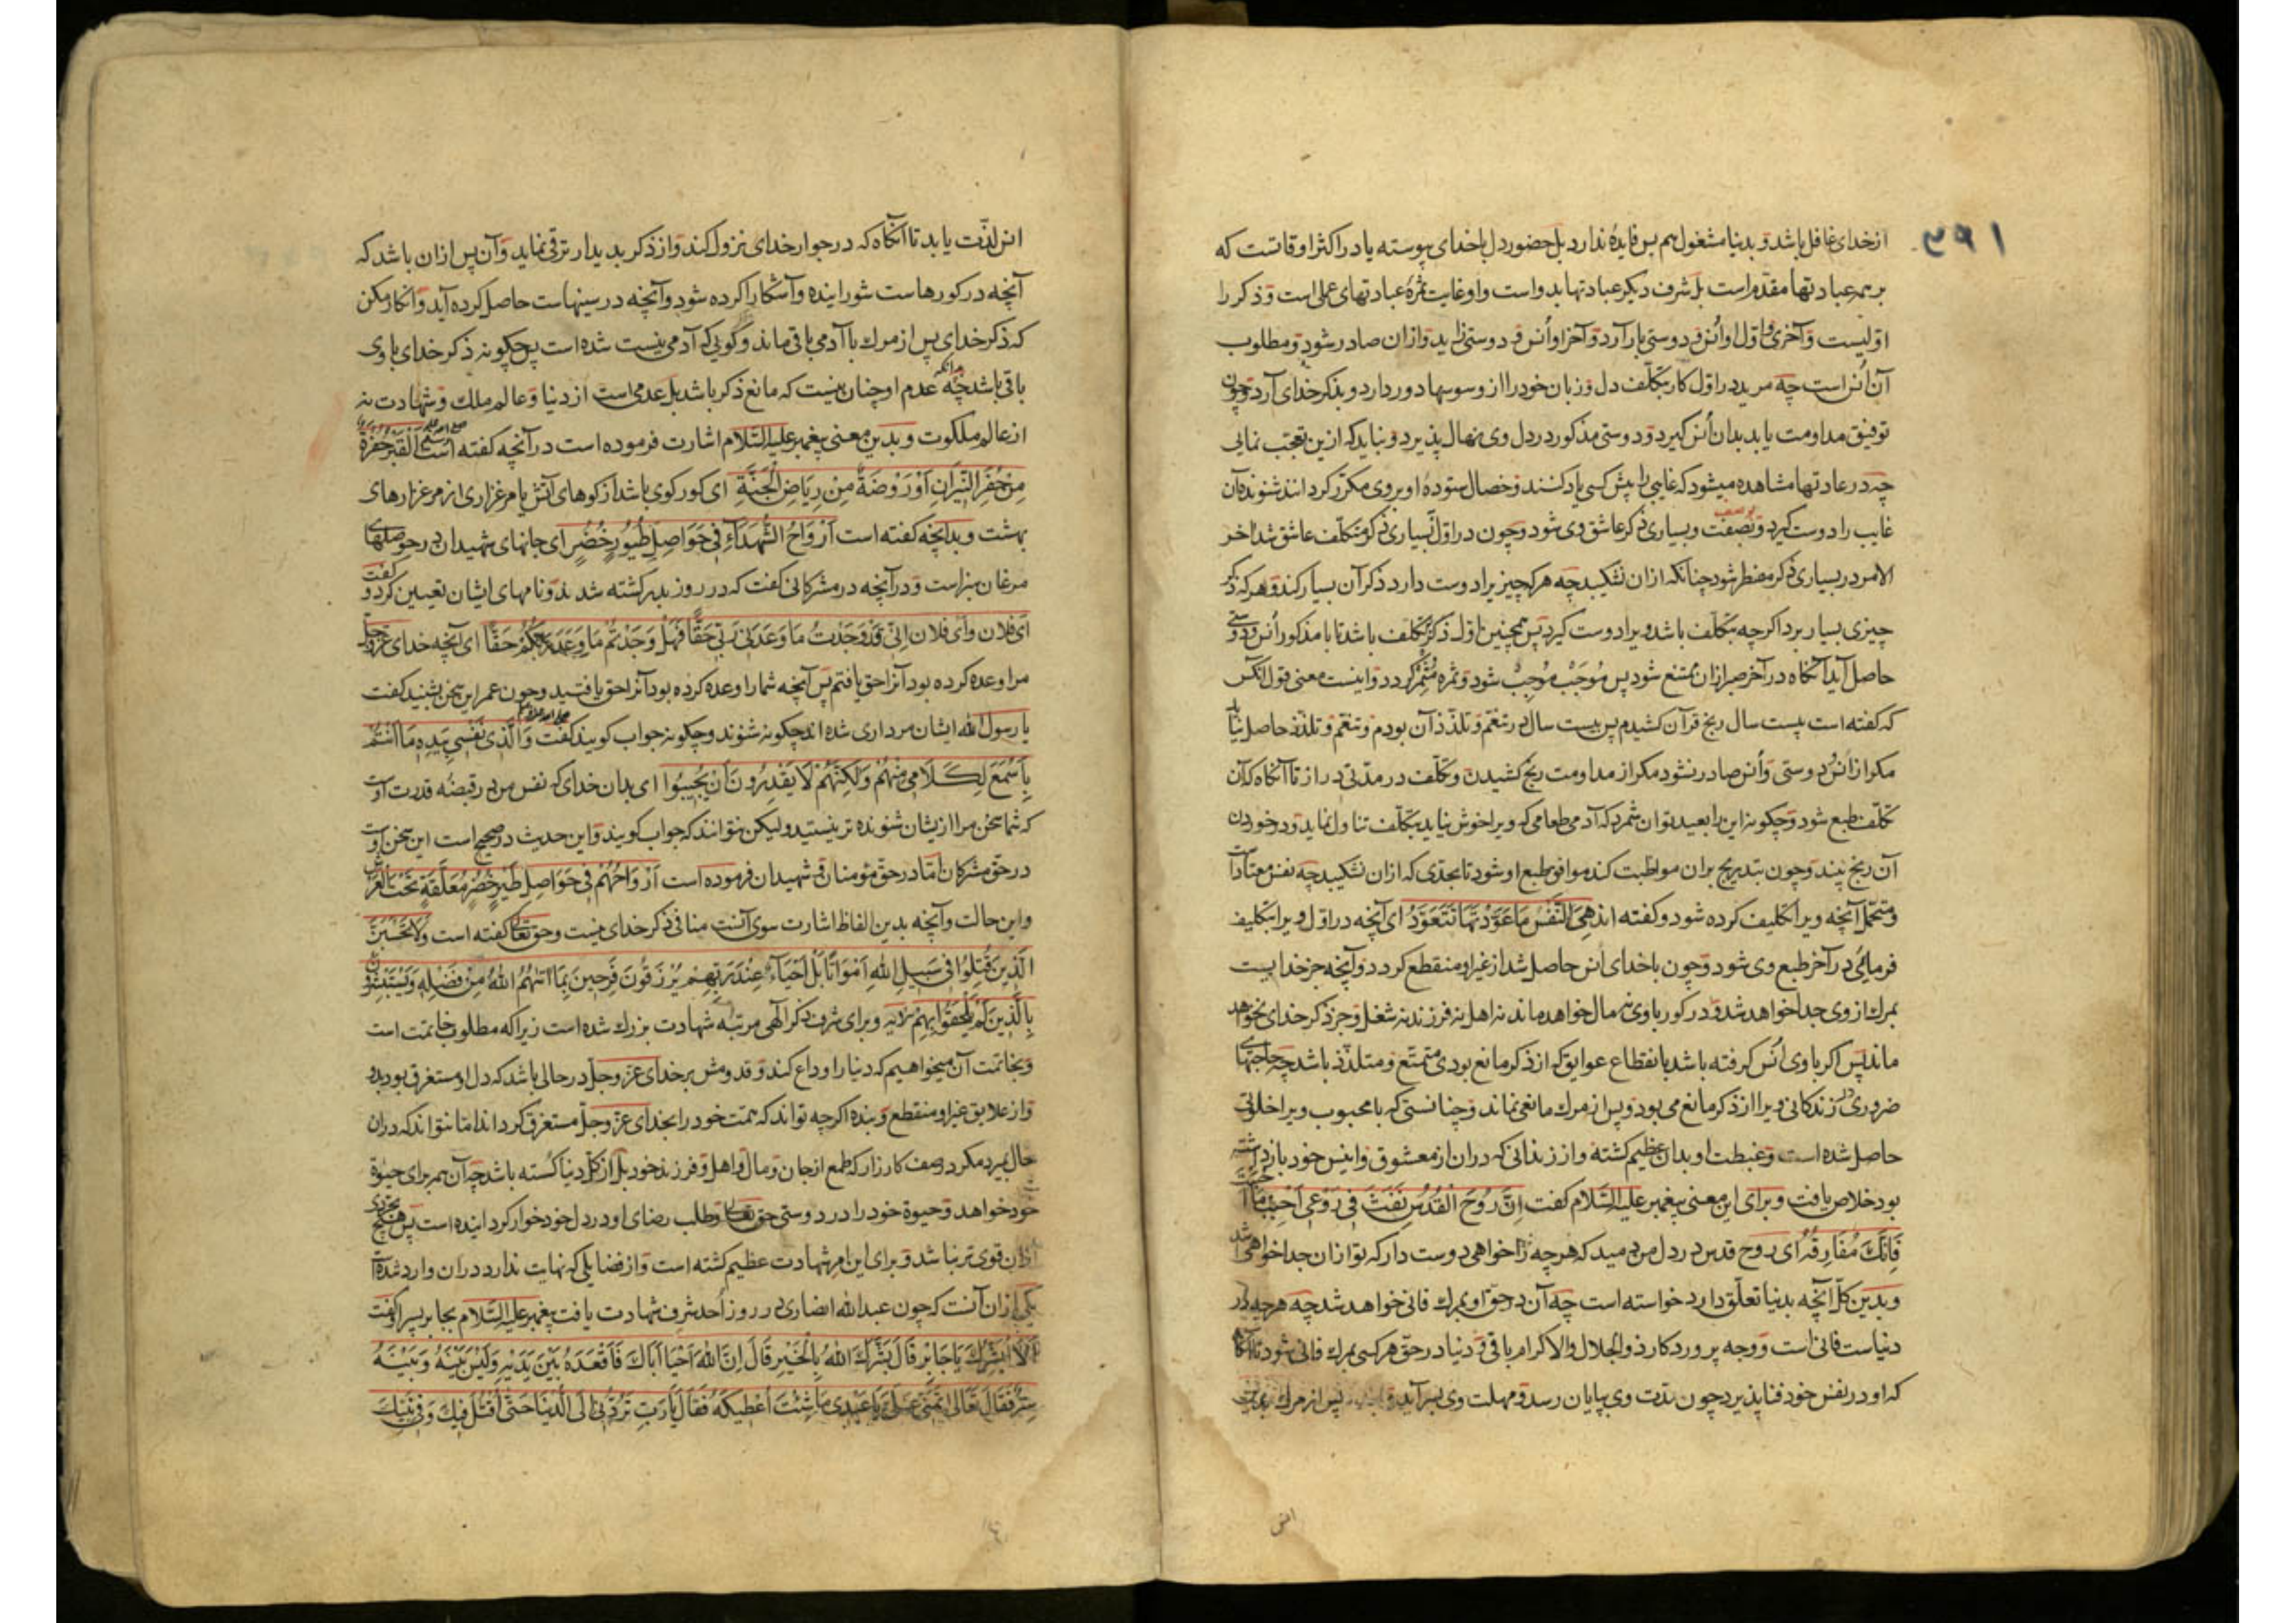 ۳۹۱
ازخدای غافل باشد و بدنیا مشغول هم بس فایده ندارد بل حضور دل باخدای پیوسته یا در اکثر اوقاتست که
بر همه عبادتها مقدّم است بل شرف دیکر عبادتها بدواست و او غایت ثمرهٔ عبادتهای عملی است و ذکر را
اوّلیست و آخری واوّل او اُنس و دوستی بار آرد و آخر او اُنس و دوستی زاید و ازان صادر شود و مطلوب
آن اُنس است چه مرید در اوّل کار بتکلّف دل و زبان خود را از وسوسها دور دارد و بذکر خدای آرد و چون
توفیق مداومت یابد بدان اُنس کیرد و دوستی مذکور در دل وی نهال پذیرد و نباید که ازین تعجّب نمائی
چه در عادتها مشاهده میشود که غایبی را پیش کسی یاد کنند و خصال ستودهٔ او بر وی مکرّر کردانند شنونده آن
غایب را دوست کیرد و بصفت و بسیاری ذکر عاشق وی شود و چون در اوّل بسیاری ذکر متکلّف عاشق شد اخر
الامر در بسیاری ذکر مضطر شود چنانکه ازان نشکیبد چه هر که چیزیرا دوست دارد ذکر آن بسیار کند و هر که ذکر
چیزی بسیار برد اکرچه بتکلّف باشد ویرا دوست کیرد پس همچنین اوّل ذکر بتکلّف باشد تا با مذکور اُنس و دوستی
حاصل آید آنکاه در آخر صبر ازان ممتنع شود پس مُوجَب مُوجِب شود و ثمره مُثمِر کردد و اینست معنی قول آنکس
که کفته است بیست سال رنج قرآن کشیدم پس بیست سال در تنعّم و تلذّذ آن بودم و تنعّم و تلذّذ حاصل نیاید
مکر از اُنس و دوستی و اُنس صادر نشود مکر از مداومت رنج کشیدن و تکلّف در مدّتی دراز تا آنکاه که آن
تکلّف طبع شود و چکونه این را بعید توان شمرد که آدمی طعامی که ویرا خوش نیاید بتکلّف تناول نماید و در خوردن
آن رنج بیند و چون بتدریج بران مواظبت کند موافق طبع او شود تا بحدّی که ازان نشکیبد چه نفس معتاداست
و متحمّل آنچه ویرا تکلیف کرده شود و کفته اند هِیَ النَّفْسُ مَا عَوَّدْتَهَا تَتَعَوَّدُ ای آنچه در اوّل ویرا تکلیف
فرمائی در آخر طبع وی شود و چون باخدای اُنس حاصل شد از غیر او منقطع کردد و آنچه جز خدایست
بمرك از وی جدا خواهد شد و در کور با وی نه مال خواهد ماند نه اهل نه فرزند نه شغل و جز ذکر خدای نخواهد
ماند پس اکر با وی اُنس کرفته باشد بانقطاع عوایق که از ذکر مانع بودی متمتّع و متلذّذ باشد چه حاجتهای
ضروری در زندکانی ویرا از ذکر مانع می بود و پس از مرك مانعی نماند و چنانستی که با محبوب ویرا خلوتی
حاصل شده است و غبطت او بدان عظیم کشته و از زندانی که دران از معشوق و انیس خود بازداشته
بود خلاص یافت و برای این معنی پیغمبر علیه السّلام کفت اِنَّ رُوحَ الْقُدُسِ نَفَثَ فِی رَوْعِی اَحْبِبْ مَا اَحْبَبْتَ
فَاِنَّكَ مُفَارِقُهُ ای روح قدس در دل من دمید که هر چه را خواهی دوست دار که تو ازان جدا خواهی شد
و بدین کلّ آنچه بدنیا تعلّق دارد خواسته است چه آن در حق او بمرك فانی خواهد شد چه هر چه در
دنیاست فانی است و وجه پروردکار ذوالجلال والاکرام باقی و دنیا در حقّ هر کسی بمرك فانی شود تا آنکاه
که او در نفس خود فنا پذیرد چون مدّت وی بپایان رسد و مهلت وی بسر آید پس از مرك بدین
انس
انس لذّت یابد تا آنکاه که در جوار خدای نزول کند و از ذکر بدیدار ترقی نماید و آن پس ازان باشد که
آنچه در کورهاست شورانیده و آشکارا کرده شود و آنچه در سینهاست حاصل کرده آید و انکار مکن
که ذکر خدای پس از مرك با آدمی باقی ماند و کویی که آدمی نیست شده است پس چکونه ذکر خدای با وی
باقی باشد چه عدم او چنان نیست که مانع ذکر باشد بل عدمی است از دنیا و عالم ملك و شهادت نه
از عالم ملکوت و بدین معنی پیغمبر علیه السّلام اشارت فرموده است در آنچه کفته است اَلْقَبْرُ حُفْرَةٌ
مِنْ حُفَرِ النِّیرَانِ اَوْ رَوْضَةٌ مِنْ رِیَاضِ الْجَنَّةِ ای کور کوی باشد از کوهای آتش یا مرغزاری از مرغزارهای
بهشت و بدانچه کفته است اَرْوَاحُ الشُّهَدَآءِ فِی حَوَاصِلِ طُیُورٍ خُضْرٍ ای جانهای شهیدان در حوصلهای
مرغان سبزاست و در آنچه در مشرکانی کفت که در روز بدر کشته شدند و نامهای ایشان تعیین کرد و کفت
ای فلان و ای فلان اِنِّی قَدْ وَجَدْتُ مَا وَعَدَنِی رَبِّی حَقًّا فَهَلْ وَجَدْتُمْ مَا وَعَدَ رَبُّکُمْ حَقًّا ای آنچه خدای عزّ و جلّ
مرا وعده کرده بود آنرا حق یافتم پس آنچه شما را وعده کرده بود آنرا حق یافتید و چون عمر این سخن بشنید کفت
یا رسول الله ایشان مرداری شده اند چکونه شنوند و چکونه جواب کویند کفت وَالَّذِی نَفْسِی بِیَدِهِ مَا اَنْتُمْ
بِاَسْمَعَ لِکَلَامِی مِنْهُمْ وَلَکِنَّهُمْ لَا یَقْدِرُونَ اَنْ یُجِیبُوا ای بدان خدای که نفس من در قبضه قدرت اوست
که شما سخن مرا ازیشان شنونده تر نیستید ولیکن نتوانند که جواب کویند و این حدیث در صحیح است این سخن اوست
در حقّ مشرکان امّا در حقّ مؤمنان و شهیدان فرموده است اَرْوَاحُهُمْ فِی حَوَاصِلِ طَیْرٍ خُضْرٍ مُعَلَّقَةٍ تَحْتَ الْعَرْشِ
و این حالت و آنچه بدین الفاظ اشارت سوی آنست منافی ذکر خدای نیست و حق تعالی کفته است وَلَا تَحْسَبَنَّ
الَّذِینَ قُتِلُوا فِی سَبِیلِ اللهِ اَمْوَاتًا بَلْ اَحْیَاءٌ عِنْدَ رَبِّهِمْ یُرْزَقُونَ فَرِحِینَ بِمَا اٰتٰیهُمُ اللهُ مِنْ فَضْلِهِ وَیَسْتَبْشِرُونَ
بِالَّذِینَ لَمْ یَلْحَقُوا بِهِمْ و برای شرف ذکر الهی مرتبه شهادت بزرك شده است زیرا که مطلوب خاتمت است
و بخاتمت آن میخواهیم که دنیا را وداع کند و قدومش بر خدای عزّ و جلّ در حالی باشد که دل او مستغرق بود بدو
و از علایق غیر او منقطع و بنده اکرچه تواند که همّت خود را بخدای عزّ و جلّ مستغرق کرداند امّا نتواند که دران
حال بمیرد مکر در صف کارزار که طمع از جان و مال و اهل و فرزند خود بل از کلّ دنیا کسسته باشد چه آن همه برای حیوة
خود خواهد و حیوة خود را در دوستی حق تعالی و طلب رضای او در دل خود خوار کردانیده است پس هیچ تجرّدی
ازان قوی تر نباشد و برای این امر شهادت عظیم کشته است و از فضایلی که نهایت ندارد دران وارد شده است
یکی ازان آنست که چون عبدالله انصاری در روز اُحد شرف شهادت یافت پیغمبر علیه السّلام بجابر پسر او کفت
اَلَا اُبَشِّرُكَ یَا جَابِرُ قَالَ بَشَّرَكَ اللهُ بِالْخَیْرِ قَالَ اِنَّ اللهَ اَحْیَا اَبَاكَ فَاَقْعَدَهُ بَیْنَ یَدَیْهِ وَلَیْسَ بَیْنَهُ وَبَیْنَهُ
سِتْرٌ فَقَالَ تَعَالَی تَمَنَّ عَلَیَّ یَا عَبْدِی مَا شِئْتَ اُعْطِیکَهُ فَقَالَ یَا رَبِّ تَرُدُّنِی اِلَی الدُّنْیَا حَتَّی اُقْتَلَ فِیكَ وَفِی نَبِیِّكَ